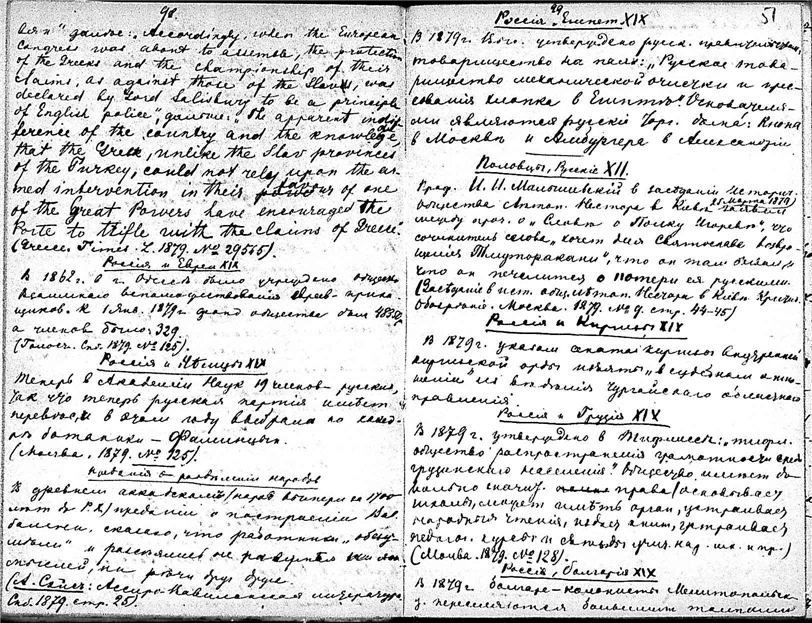 98.
далее: "Accordingly, when the European
Congress was about to assemble, the protection
of the Greeks and the championship of their
claims, as against those of the Slavs, was
declared by Lord Salisbury to be a principle
of English police", далее: "The apparent indif-
ference of the country and the knowledge,
that the Greek, unlike the Slav provinces
of the Turkey, could not rely upon the ar-
med intervention in their favour of one
of the Great Powers have encouraged the
Porte to thifle with the claims of Greece.
(Greece. Times. L. 1879. No 29565).
Россія и Евреи XIX
В 1862 г. в г. Одессѣ было учреждено общество
взаимнаго вспомоществованія евреев-прика-
щиков. К 1 янв. 1879 г. фонд общества был
а членов было: 329.
(Голос. Спб. 1879. No 125).
Россія и Нѣмцы XIX
Теперь в Академіи Наук 19 членов-русских,
так что теперь русская партія имѣет
перевѣс, и в этом году выбрала по кафед-
рѣ ботаники – Фаминцын.
(Москва. 1879. No 125).
о разделеніи народов
В древнем аккадском (народ
лѣт до Р.Х.) преданіи о построеніи Вави-
сказано, что работники
и разсѣялись не разумѣя
рѣчи друг друга.
(А. Сэйс: Ассиро-Вавилонская литература
Спб. 1879. стр. 25).
99 51
Россія, Египет XIX
В 1879 г. утверждено русск. правительством
товарищество на паях: "Русское това-
рищество механической очистки и прес-
сованія хлопка в Египтѣ". Основателя-
ми являются русскій Торг. дома: Кнопа
в Москвѣ и в Александріи
Половцы, Русскіе XII.
Проф. И. И. Малышевскій в засѣданіи Историч.
общества Лѣтоп. Нестора в Кіевѣ 25 марта 1879
между проч. о "Словѣ о Полку Игоревѣ", что
сочинитель слова "хочет для Святослава возвра-
щенія Тмутаракани", что он там бывал, и
что он печалится о потери ея русскими.
(Засѣданіе в ист. общ. лѣтоп. Нестора в Кіевѣ. Критич.
Обозрѣніе. Москва. 1879. No 9. стр. 44-45)
Россія и Киргизы XIX
В 1879 г. указом сената киргизы Внутренней
киргизской орды изъяты "в судебном отно-
шеніи" из вѣдѣнія Тургайского областнаго
правленія.
Россія и Грузія XIX
В 1879 г. утверждено в Тифлисѣ: "Тифл.
общество распространенія грамотности среди
грузинского населенія". Общество имѣет до-
вольно значит. права (основывает
школы, может имѣть орган, устраивает
народныя чтенія, издает книги, устраивает
педагог. курсы и съѣзды учит. над. шк. и пр.)
(Москва. 1879. No 128).
Россія, Болгарія XIX
В 1879 г. болгаре-колонисты Мелитопольск.
у. переселяются большими